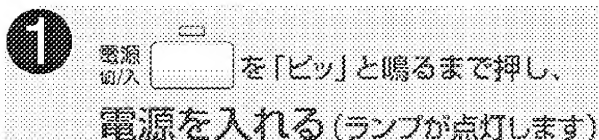 ❶
電源
切/入 を「ピッ」と鳴るまで押し、
電源を入れる(ランプが点灯します)